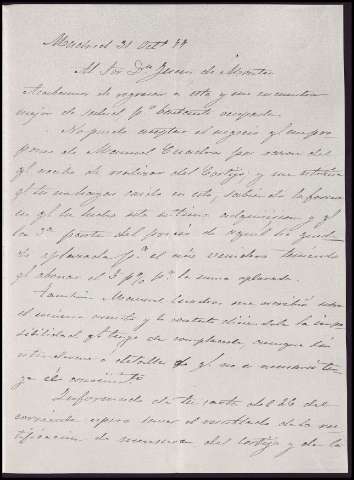 Madrid 31 Oct.e 77
Al Sor Dn Juan de Montes
Acabamos de regresar a esta y me encuentro
mejor de salud pº bastante ocupado.
No puedo aceptar el negocio q! me pro
pone de Manuel Cuadra por razon del
q! acabo de realizar del Cortijo, y me
q! tu no hayas caido en esto, sabiendo la forma
en q! he hecho esta ultima adquisicion y q!
la 3ª parte del precio de aquel ha
do aplazada pª el año venidero teniendo
q! abonar el 3 p% pr la suma aplazada.
Tambien Manuel Cuadra me escribió sobre
el mismo asunto y le contesté diciendole la impo
sibilidad q! tengo de complacerle, aunque sin
entrar a detalle de q! no es necesario ten
ga él conocimiento
Informado de tu carta del 26 del
corriente espero saber el resultado de la rec
tificacion de mensura del cortijo y de la